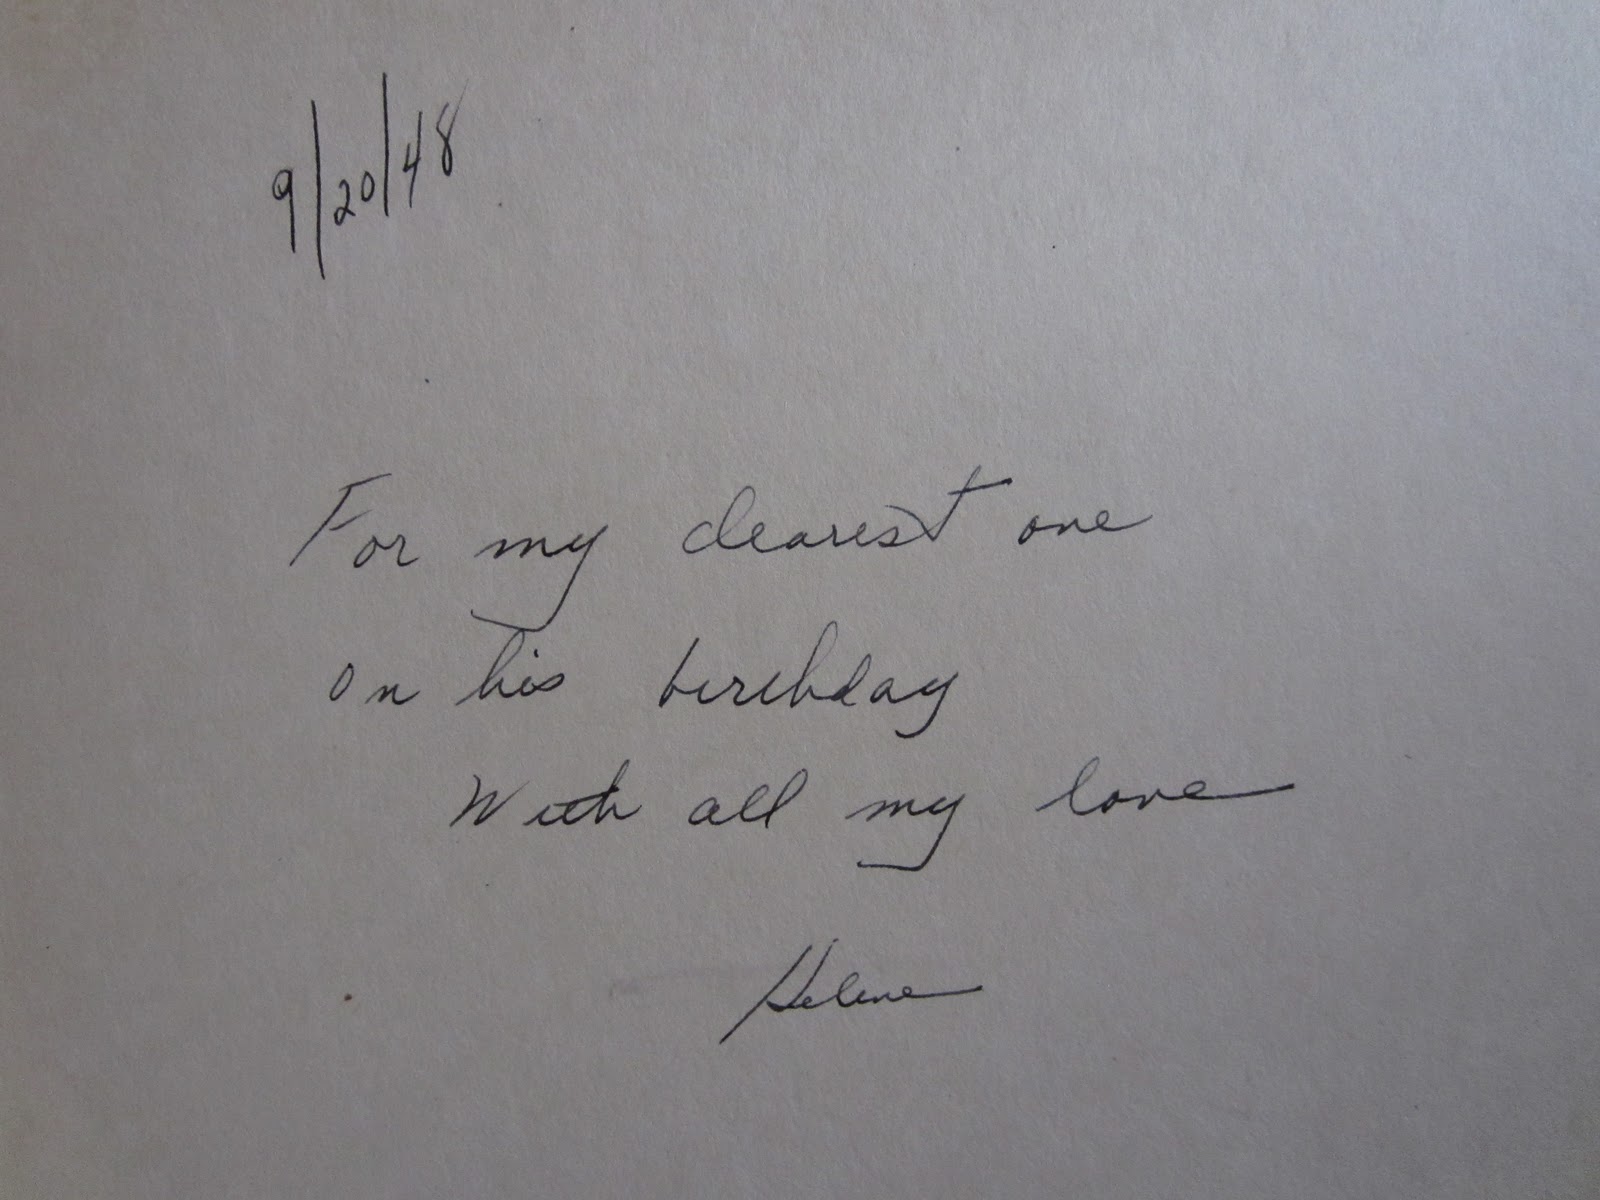 9/20/48
For my dearest one
on his birthday
With all my love
Helene